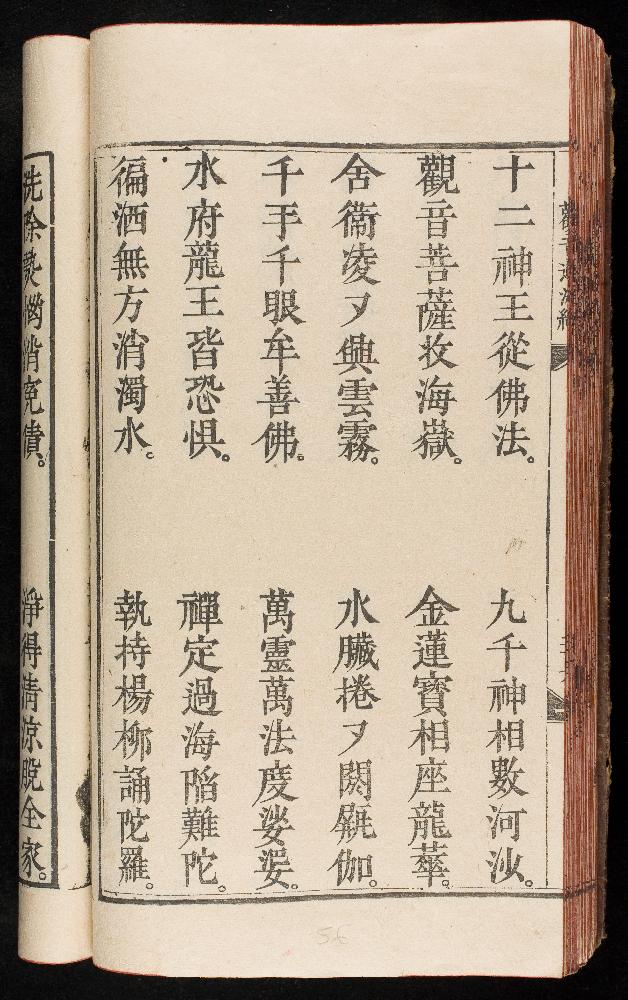 十二神王從佛法。 九千神相數河沙。
觀音菩薩攷海嶽。 金蓮寳相座龍華。
舍衞凌ヌ興雲霧。 水臓捲ヌ閼毿伽。
千手千眼牟善佛。 萬靈萬法度娑婆。
水府龍王皆恐惧。 禪定過海陷難陀。
徧洒無方消濁水。 執持楊柳誦陀羅。
洗除 惱 寃 。 淨得清涼脫全家。